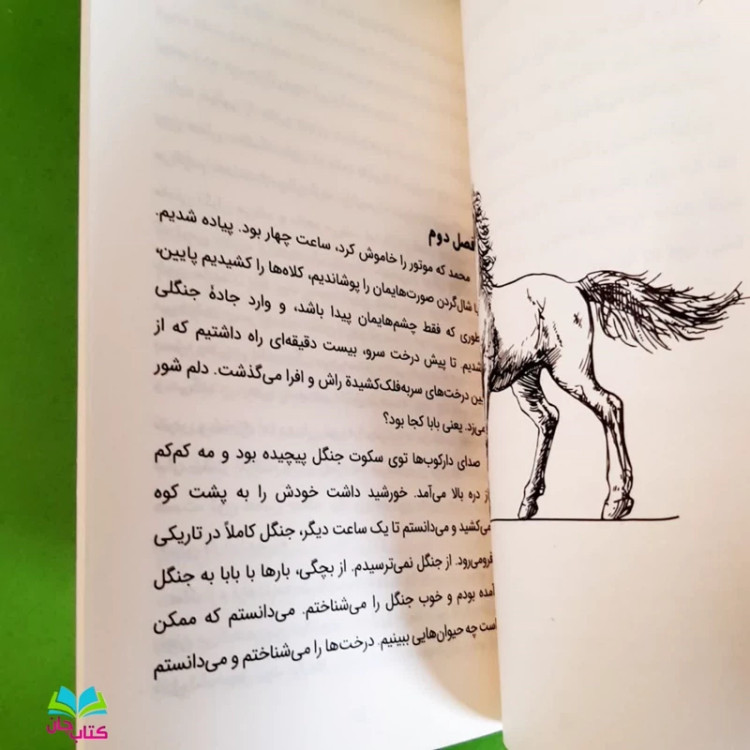 فصل دوم
محمد که موتور را خاموش کرد، ساعت چهار بود. پیاده شدیم.
با شال‌گردن صورت‌هایمان را پوشاندیم، کلاه‌ها را کشیدیم پایین،
طوری که فقط چشم‌هایمان پیدا باشد، و وارد جادهٔ جنگلی
شدیم. تا پیش درخت سرو، بیست دقیقه‌ای راه داشتیم که از
بین درخت‌های سربه‌فلک‌کشیدهٔ راش و افرا می‌گذشت. دلم شور
می‌زد. یعنی بابا کجا بود؟
صدای دارکوب‌ها توی سکوت جنگل پیچیده بود و مه کم‌کم
از دره بالا می‌آمد. خورشید داشت خودش را به پشت کوه
می‌کشید و می‌دانستم تا یک ساعت دیگر، جنگل کاملاً در تاریکی
فرومی‌رود. از جنگل نمی‌ترسیدم. از بچگی، بارها با بابا به جنگل
آمده بودم و خوب جنگل را می‌شناختم. می‌دانستم که ممکن
است چه حیوان‌هایی ببینیم. درخت‌ها را می‌شناختم و می‌دانستم
کتاب جان